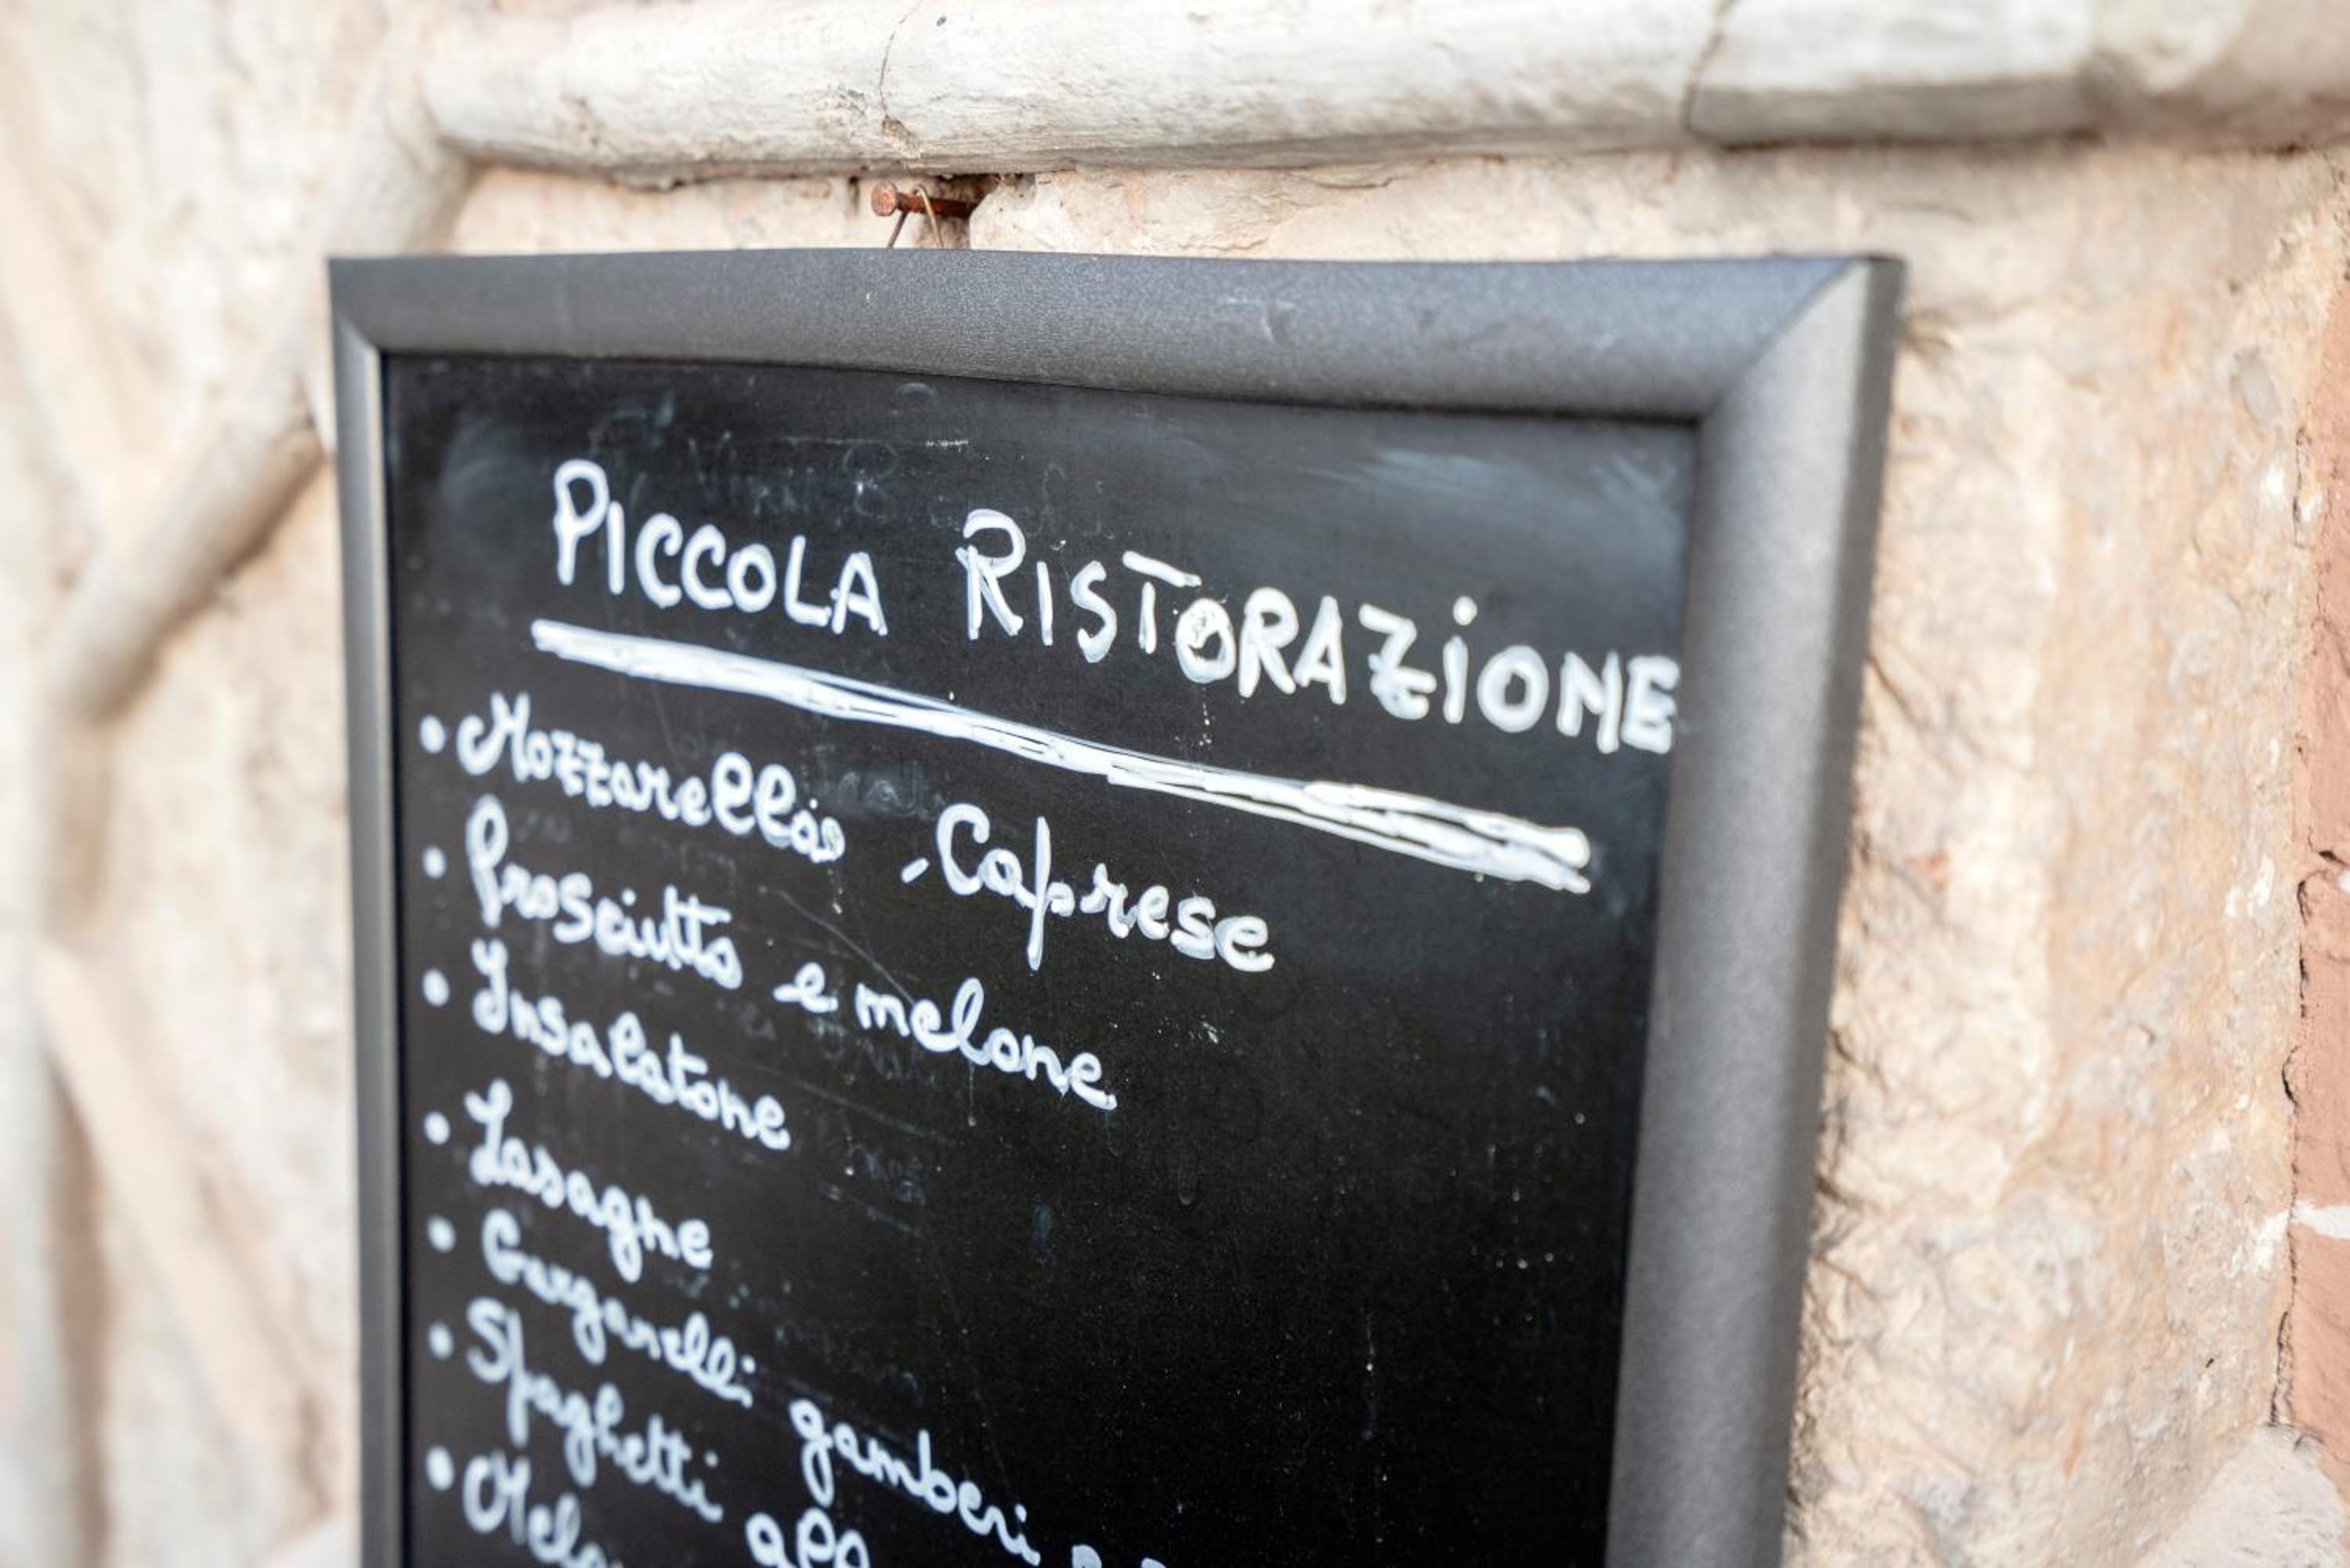 PICCOLA RISTORAZIONE
• Mozzarella - Caprese
• Prosciutto e melone
• Insalatone
• Lasagne
• Garganelli gamberi
• Spaghetti all